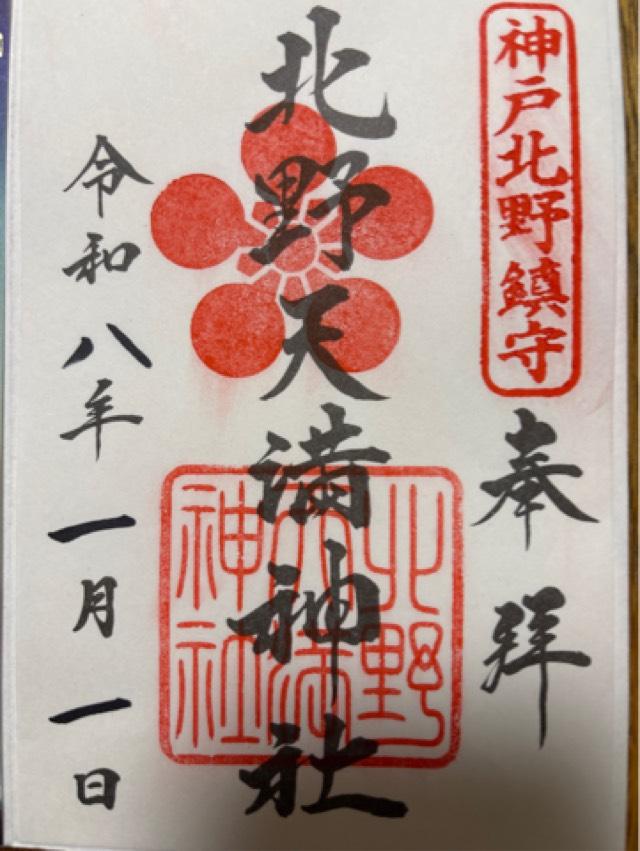 神戸北野鎮守
奉拝
北野天満神社
北野天満神社
令和八年一月一日